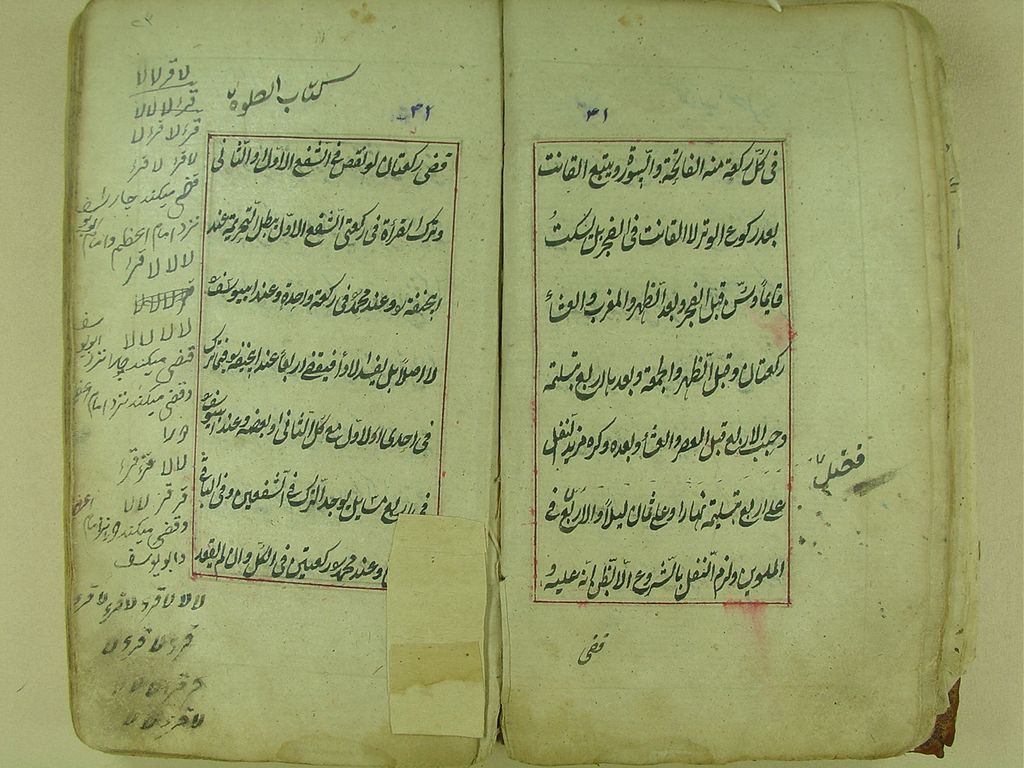 ۴۱
فی کلّ رکعة منه الفاتحة والسورة ویتبع القانت
بعد رکوع الوتر لا القانت فی الفجر بل یسکت
قایماً وسنّ قبل الفجر وبعد الظهر والمغرب والعشاء
رکعتان وقبل الظهر والجمعة وبعدها اربع بتسلیمة
وحبب الاربع قبل العصر والعشاء وبعده وکره مزید النفل
علی اربع بتسلیمة نهارا وعلی ثمان لیلاً والاربع فی
الملوین ولزم النفل بالشروع الّا بظنّ انّه علیه و
قضی
فصل
کتاب الصلوة
۴۲
قضی رکعتان لو نقض فی الشفع الاوّل او الثانی
وترک القرأة فی رکعتی الشفع الاوّل یبطل التحریمة عند
ابیحنیفة ره وعند محمدؒ فی رکعة واحدة وعند ابییوسف
لا اصلاً بل یفسد الاداء فیقضی اربعاً عند ابیحنیفة فیما ترک
فی احدی الاوّل مع کلّ الثانی او بعضه وعند ابییوسف
فی اربع مسایل یوجد الترک فی الشفعین وفی الباقی
وعند محمد رکعتین فی الکلّ وان لم یقعد
لا قرء لا لا
قرء لا لا لا
قرء لا قرء لا
لا قرء لا قرء
قضی میکند چار
نزد امام اعظم و امام ابو یوسف
لا لا لا قرء
لا لا لا لا
قضی میکند چار نزد ابو یوسف
دو قضی میکند نزد امام اعظم
لا لا قرء قرء
قرء قرء لا لا
دو قضی میکند نزد امام
و ابو یوسف
لا لا لا قرء لا قرء لا قرء
قرء لا قرء لا